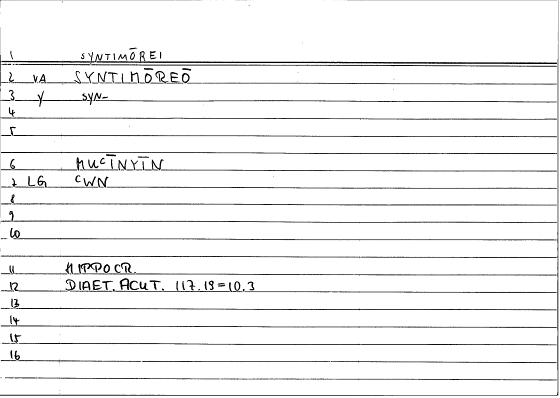 1 SYNTIMŌREI
2 VA SYNTIMŌREŌ
3 Y SYN-
4
5
6 MUᶜĪNYĪN
7 LG ᶜWN
8
9
10
11 HIPPOCR.
12 DIAET. ACUT. 117.19=10.3
13
14
15
16